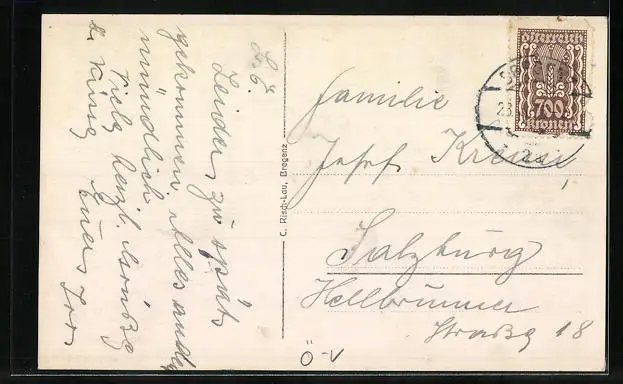 L. F.
Leider zu spät
gekommen, alles andre
mündlich
Viele herzl. Grüße
Euer
C. Risch-Lau, Bregenz
Familie
Josef
Salzburg
Hellbrunner
Straße 18
Österreich
700
Kronen
Ö-V